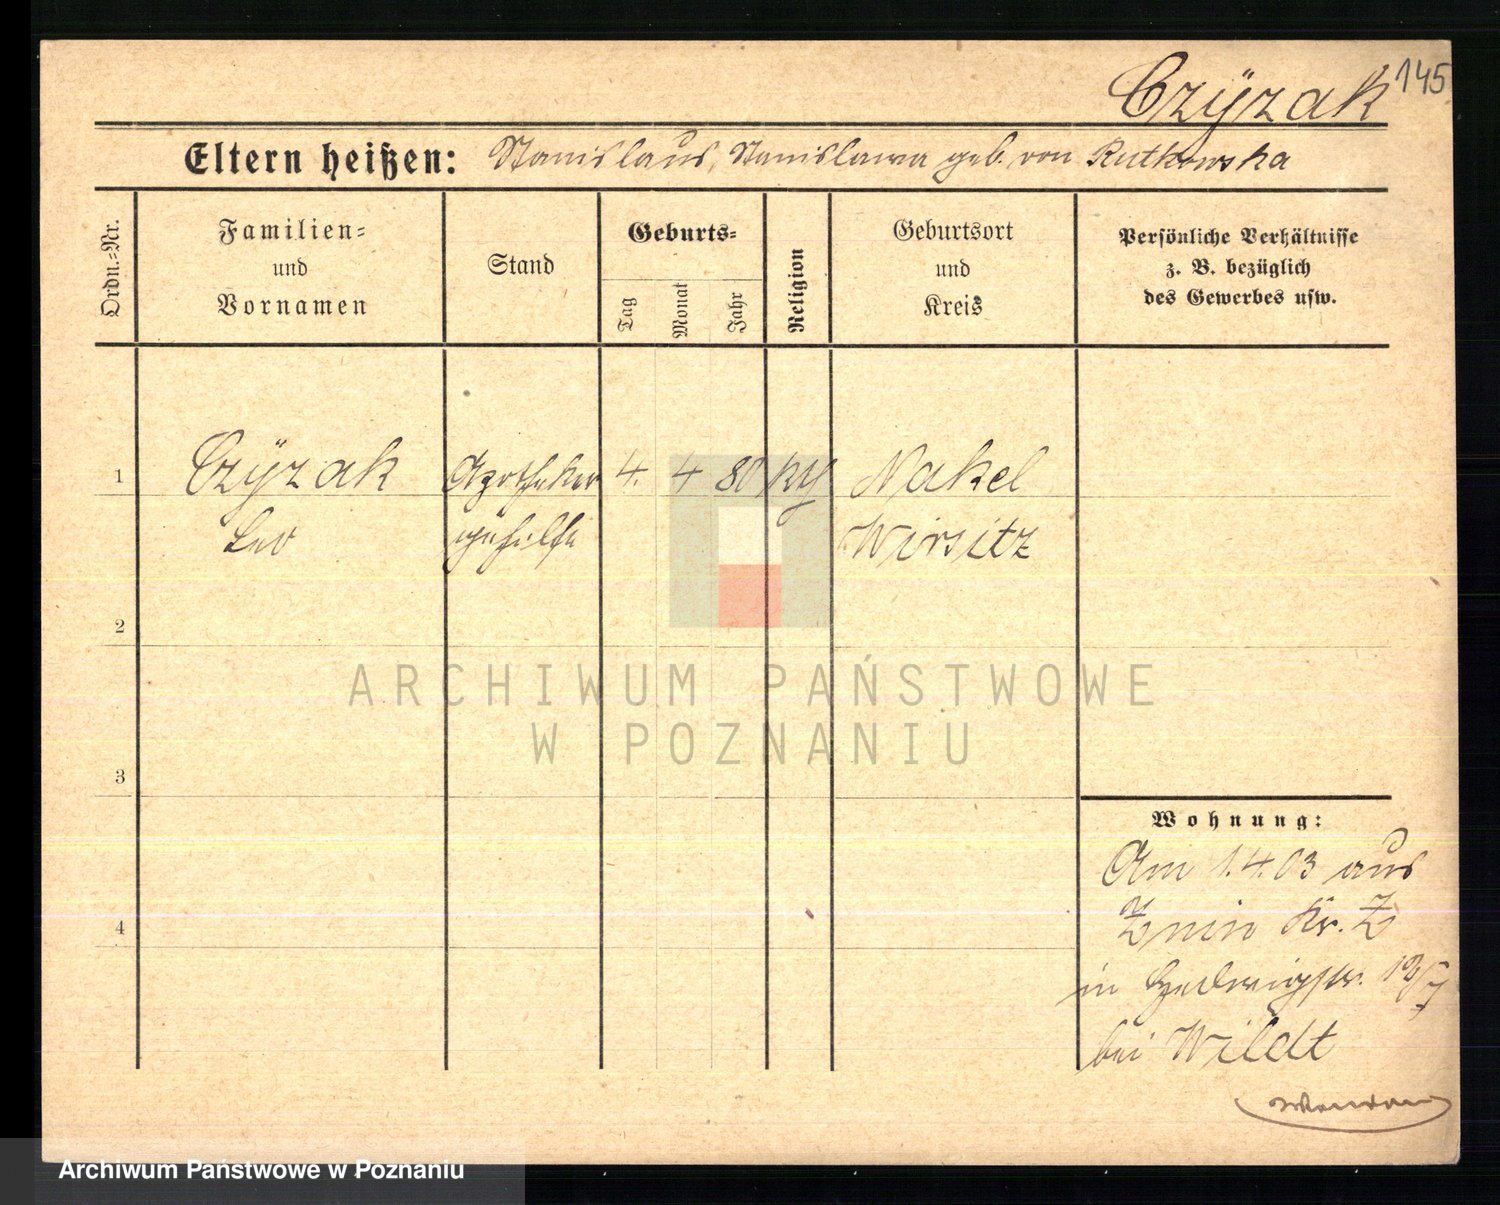 Czÿzak 145
Eltern heißen: Stanislaus, Stanislawa geb. von Rutkowska
Ordn.=Nr.
Familien=
und
Vornamen
Stand
Geburts=
Tag
Monat
Jahr
Religion
Geburtsort
und
Kreis
Persönliche Verhältnisse
z. B. bezüglich
des Gewerbes usw.
1 Czÿzak Apotheker 4. 4 80 Nakel
Leo gehilfe Wirsitz
2
3
4
Wohnung:
Am 1.4.03 aus
Znin Kr. Z
in Hedwigstr.
bei Wildt
ARCHIWUM PAŃSTWOWE
W POZNANIU
Archiwum Państwowe w Poznaniu